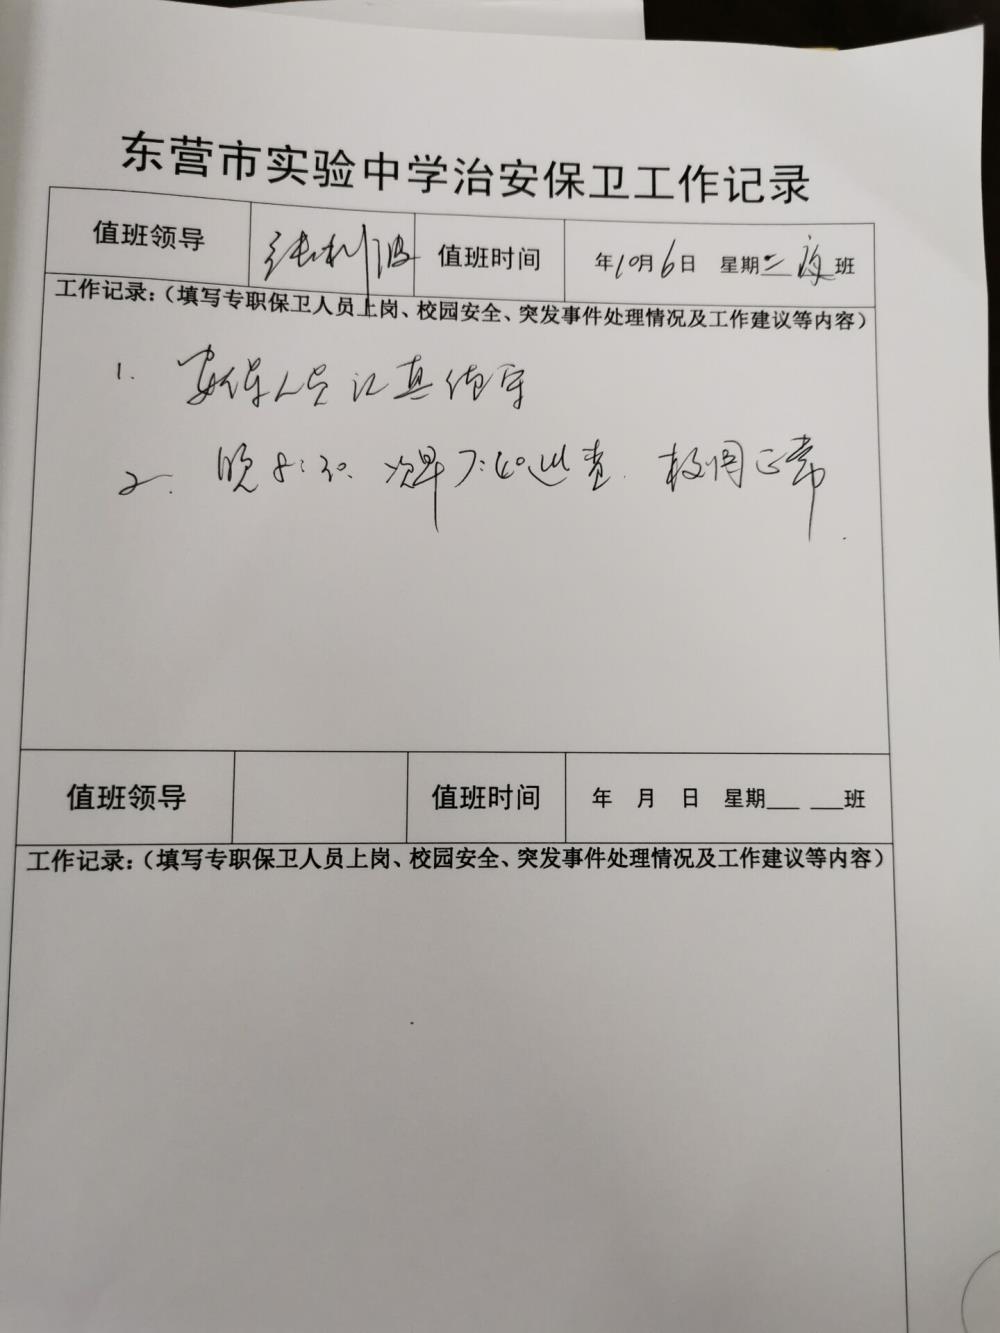 东营市实验中学治安保卫工作记录
值班领导 张利波 值班时间 年10月6日 星期二 夜班
工作记录：（填写专职保卫人员上岗、校园安全、突发事件处理情况及工作建议等内容）
1. 安保人员认真值守
2. 晚8:30. 次早7:40巡查. 校园正常.
值班领导 值班时间 年 月 日 星期___ ___班
工作记录：（填写专职保卫人员上岗、校园安全、突发事件处理情况及工作建议等内容）